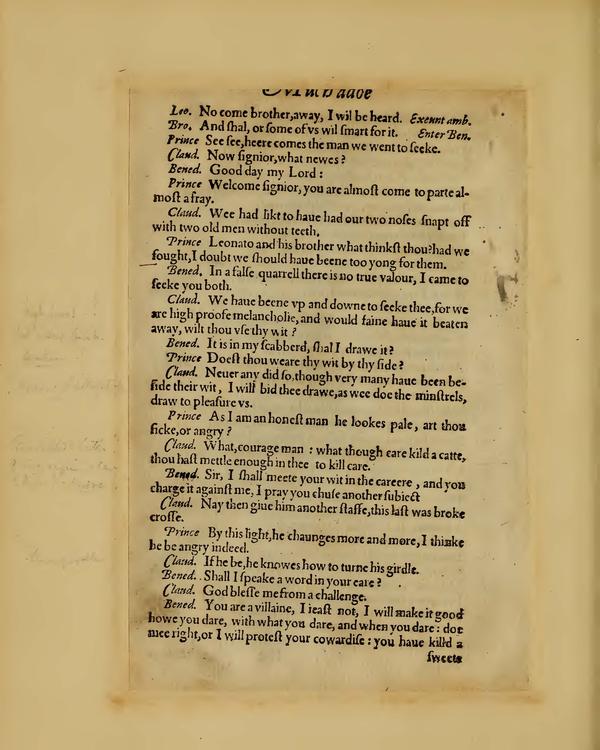 Leo. No come brother,away, I wil be heard. Exeunt amb.
Bro. And ſhal, or ſome of vs wil ſmart for it. Enter Ben.
Prince See ſee,heere comes the man we went to ſeeke.
Claud. Now ſignior,what newes?
Bened. Good day my Lord:
Prince Welcome ſignior, you are almoſt come to parte al-
moſt a fray.
Claud. Wee had likt to haue had our two noſes ſnapt off
with two old men without teeth.
Prince Leonato and his brother what thinkſt thou?had we
fought,I doubt we ſhould haue beene too yong for them.
Bened. In a falſe quarrell there is no true valour, I came to
ſeeke you both.
Claud. We haue beene vp and downe to ſeeke thee,for we
are high proofe melancholie,and would faine haue it beaten
away, wilt thou vſe thy wit?
Bened. It is in my ſcabberd, ſhal I drawe it?
Prince Doeſt thou weare thy wit by thy ſide?
Claud. Neuer any did ſo,though very many haue been be-
ſide their wit, I will bid thee drawe,as wee doe the minſtrels,
draw to pleaſure vs.
Prince As I am an honeſt man he lookes pale, art thou
ſicke,or angry?
Claud. What,courage man : what though care kild a catte,
thou haſt mettle enough in thee to kill care.
Bened. Sir, I ſhall meete your wit in the careere , and you
charge it againſt me, I pray you chuſe another ſubiect
Claud. Nay then giue him another ſtaffe,this laſt was broke
croſſe.
Prince By this light,he chaunges more and more, I thinke
he be angry indeed.
Claud. If he be,he knowes how to turne his girdle.
Bened. Shall I ſpeake a word in your eare?
Claud. God bleſſe me from a challenge.
Bened. You are a villaine, I ieaſt not, I will make it good
howe you dare, with what you dare, and when you dare : doe
mee right,or I will proteſt your cowardiſe : you haue killd a
ſweete